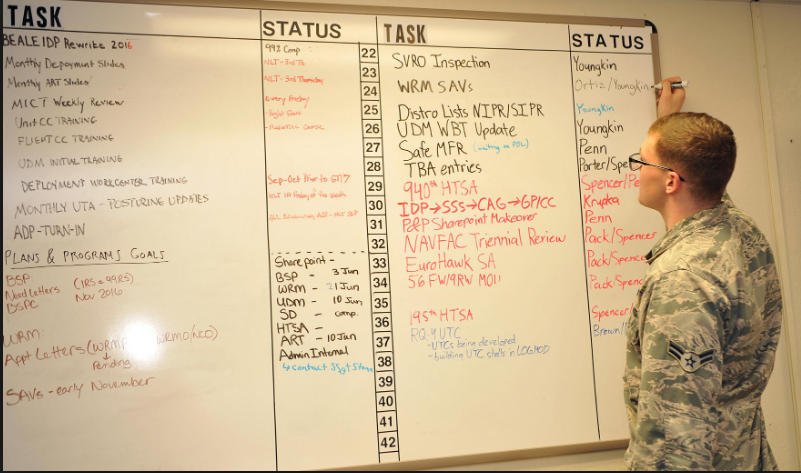 TASK STATUS TASK STATUS
BEALE IDP Rewrite 2016 99% Comp
Monthly Deployment Slides NLT - 3rd Th
Monthly ART Slides NLT - 3rd Thursday
MICT Weekly Review Every Friday
Unit CC TRAINING
FLIGHT CC TRAINING
UDM INITIAL TRAINING
DEPLOYMENT WORKCENTER TRAINING Sep-Oct Prior to
MONTHLY UTA - POSTURING UPDATES
ADP-TURN-IN
PLANS & PROGRAMS GOALS
BSP:
Need Letters (IRS = 99RS)
BSPC Nov 2016
WRM:
Appt Letters (WRMO/NCO)
Pending
SAVs - early November
Sharepoint -
BSP - 3 Jun
WRM - 21 Jun
UDM - 10 Jun
SD - comp.
HTSA -
ART - 10 Jun
Admin Internal
contact SSgt
22 SVRO Inspection Youngkin
23
24 WRM SAVs Ortiz/Youngkin
25 Distro Lists NIPR/SIPR Youngkin
26 UDM WBT Update Youngkin
27 Safe MFR (waiting on POL) Penn
28 TBA entries Porter/Spe
29 940th HTSA Spencer/Pe
30 IDP→SSS→CAG→GP/CC Krupka
31 P&P Sharepoint Makeover Penn
32 NAVFAC Triennial Review Pack/Spencer
33 EuroHawk SA Pack/Spence
34 56 FW/9RW MOU Pack/Spenc
35
36 195th HTSA Spencer
37 RQ-4 UTC Brown/
- UTCs being developed
38 - building UTC shells in LOGMOD
39
40
41
42